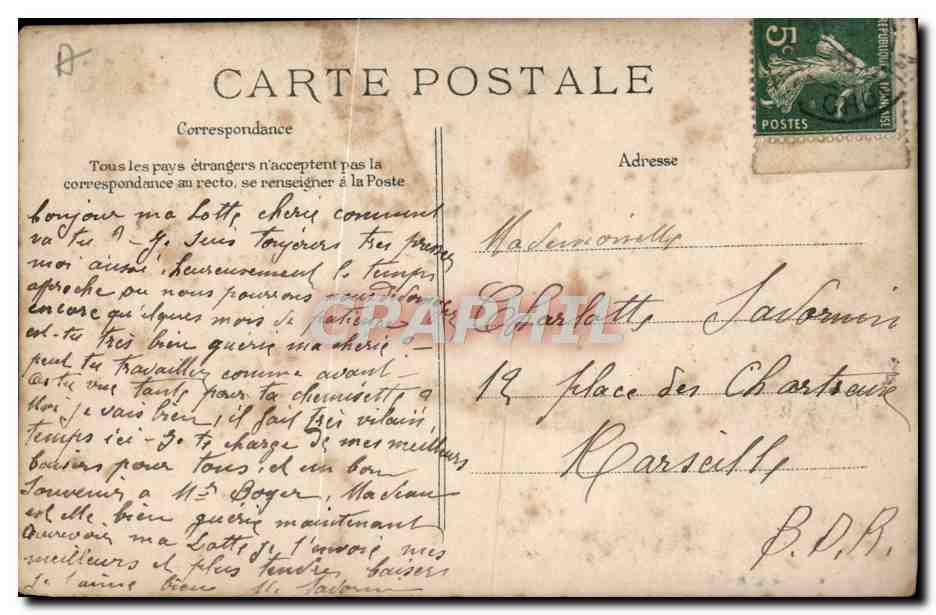 CARTE POSTALE
Correspondance
Tous les pays étrangers n'acceptent pas la
correspondance au recto, se renseigner à la Poste
Adresse
5c
REPUBLIQUE FRANÇAISE
POSTES
CPARPHIL
bonjour ma Lotte cherie comment
va tu ? - Je suis toujours tres presser
moi aussi, heureusement le temps
approche ou nous pourrons nous
encore quelques mois de patience
es-tu très bien guérie ma cherie -
peut tu travailler comme avant -
as tu vue tante pour ta chemisette ?
Moi, je vais bien, il fait très vilain
temps ici - Je te charge de mes meilleurs
baisers pour tous, et un bon
souvenir a Mr Boyer, Madeau
est elle bien guérie maintenant
aurevoir ma Lotte je t'envoie mes
meilleurs et plus tendres baisers
je t'aime bien
Mademoiselle
Charlotte Savornin
12 place des Chartreux
Marseille
B.D.R.